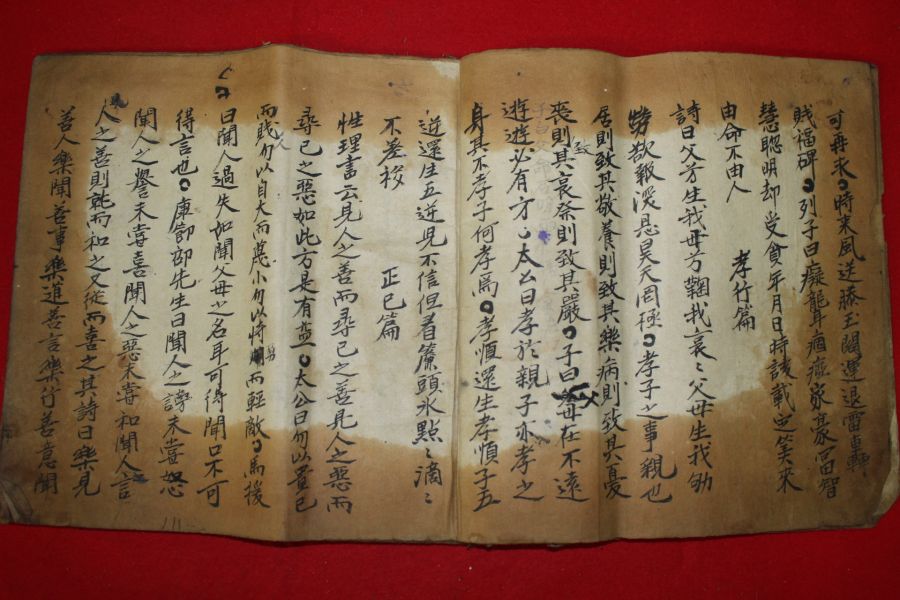 可再求○時来風送滕王閣運退雷轟
賎福碑○列子曰癡聾痼瘂家豪富智
慧聰明却受貧年月日時該載㝎筭来
由命不由人　孝行篇
詩曰父兮生我母兮鞠我哀〻父母生我劬
勞欲報深恩昊天罔極○孝子之事親也
居則致其敬養則致其樂病則致其憂
喪則致其哀祭則致其嚴○子曰父母在不遠
遊遊必有方○太公曰孝於親子亦孝之
身其不孝子何孝焉○孝順還生孝順子五
逆還生五逆児不信但看簷頭水點〻滴〻
不差移　正己篇
性理書云見人之善而尋己之善見人之惡而
尋己之惡如此方是有益○太公曰勿以貴己
而賎人勿以自大而蔑小勿以恃勇而輕敵○馬援
曰聞人過失如聞父母之名耳可得聞口不可
得言也○康節邵先生曰聞人之謗未嘗怒
聞人之譽未嘗喜聞人之惡未嘗和聞人言
人之善則就而和之又從而喜之其詩曰樂見
善人樂聞善事樂道善言樂行善意聞